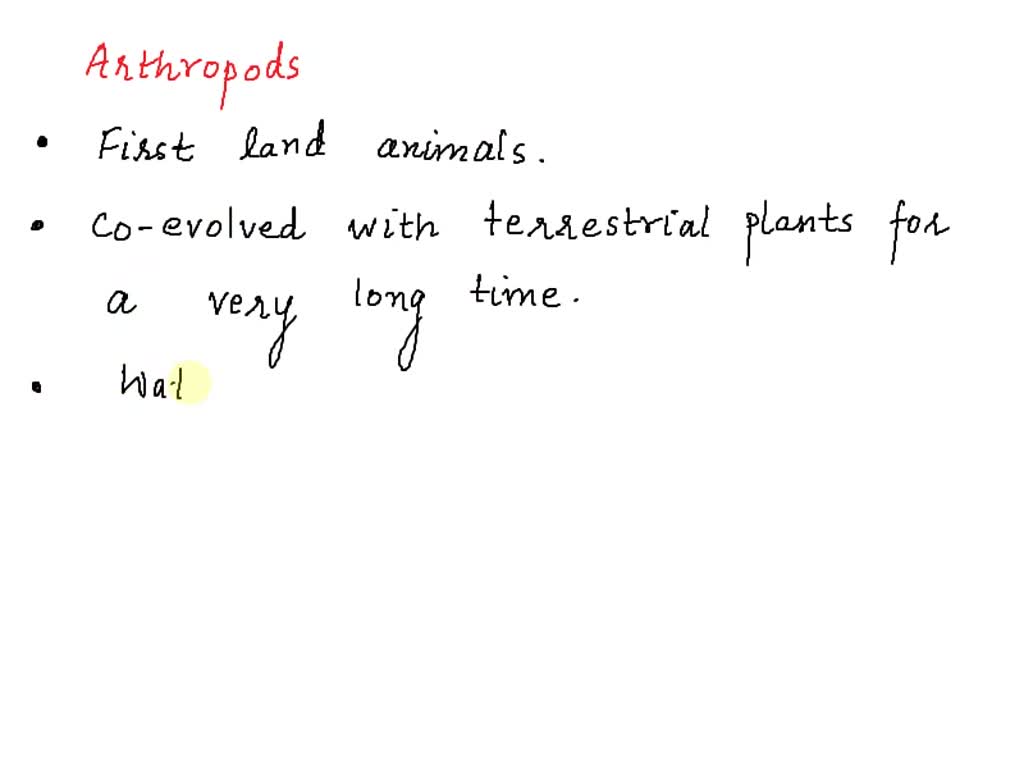 Arthropods
• First land animals.
• Co-evolved with terrestrial plants for
a very long time.
• Wat